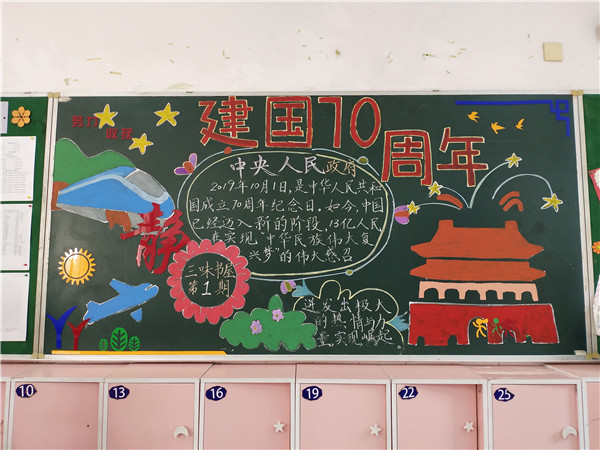 建国70
周年
努力
收获
中央人民政府
2019年10月1日,是中华人民共和
国成立70周年纪念日。如今,中国
已经迈入新的阶段,13亿人民
在实现"中华民族伟大复
兴梦"的伟大感召
静
三味书屋
第1期
迸发出极大
的热情与力
量,实现崛起
10
13
16
19
22
25